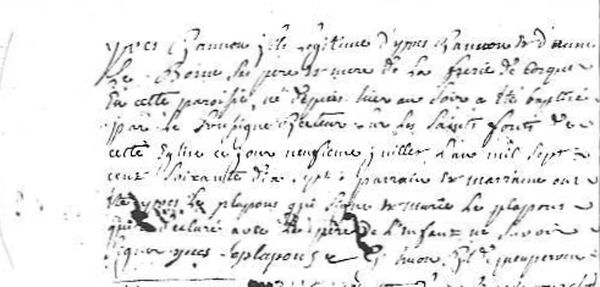 yves Hamon fils legitime d'yves Hamon & d'anne
Le Borne ses pere & mere de la frerie de
En cette paroisse, né depuis hier au soir a été baptisé
par le soussigné Recteur sur les saints fonts de
cette Eglise ce jour neufieme juillet l'an mil sept
cent soixante dix. parrain & marraine ont
été yves Le plapous qui signe & marie Le plapous
qui declare avec le père de L'enfant ne savoir
signer yves Leplapous